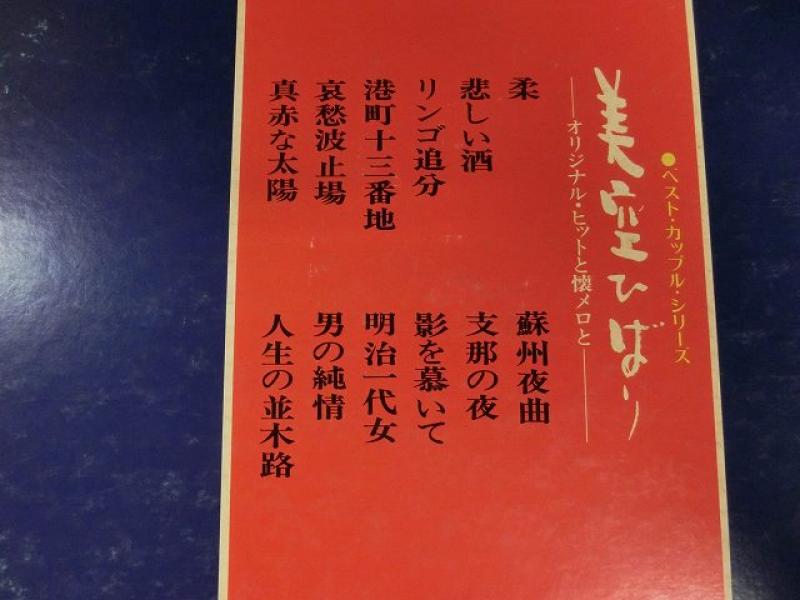 ●ベスト・カップル・シリーズ
美空ひばり
──オリジナル・ヒットと懐メロと──
柔
悲しい酒
リンゴ追分
港町十三番地
哀愁波止場
真赤な太陽
蘇州夜曲
支那の夜
影を慕いて
明治一代女
男の純情
人生の並木路